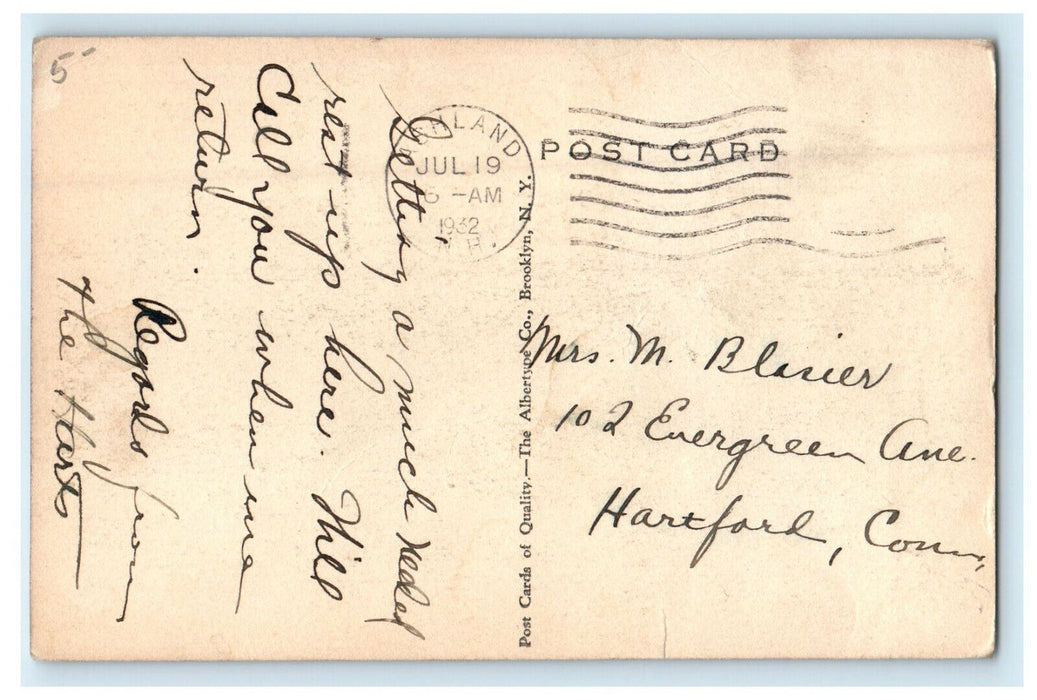 5
Getting a much needed
rest up here. Will
Call you when we
return.
Regards from
The Harts
ASHLAND
JUL 19
6 -AM
1932
N.H.
POST CARD
Post Cards of Quality.—The Albertype Co., Brooklyn, N. Y.
Mrs. M. Blasier
102 Evergreen Ave.
Hartford, Conn.